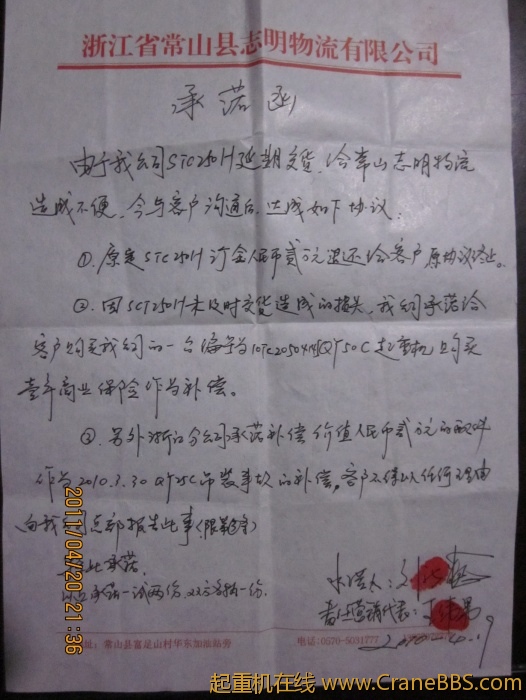 浙江省常山县志明物流有限公司
承诺函
由于我公司STC250H延期交货,给常山志明物流
造成不便,今与客户沟通后,达成如下协议:
①.原定STC250H订金人民币贰万元退还给客户原协议终止。
②.因SCT250H未及时交货造成的损失,我公司承诺给
客户购买我公司的一台编号为10TC2050414 QY50C起重机上购买
壹年商业保险作为补偿。
③.另外浙江分公司承诺补偿价值人民币贰万元的配件
作为2010.3.30 QY25C吊装事故的补偿。客户不得以任何理由
向我公司总部报告此事
此承诺。
以上承诺一式两份,双方各执一份。
承诺人:
营销代表:
地址:常山县富足山村华东加油站旁
电话:0570-5031777
2011/04/20 21:36
起重机在线 www.CraneBBS.com